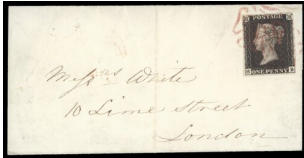 POSTAGE
ONE PENNY
Messrs White
10 Lime Street
London